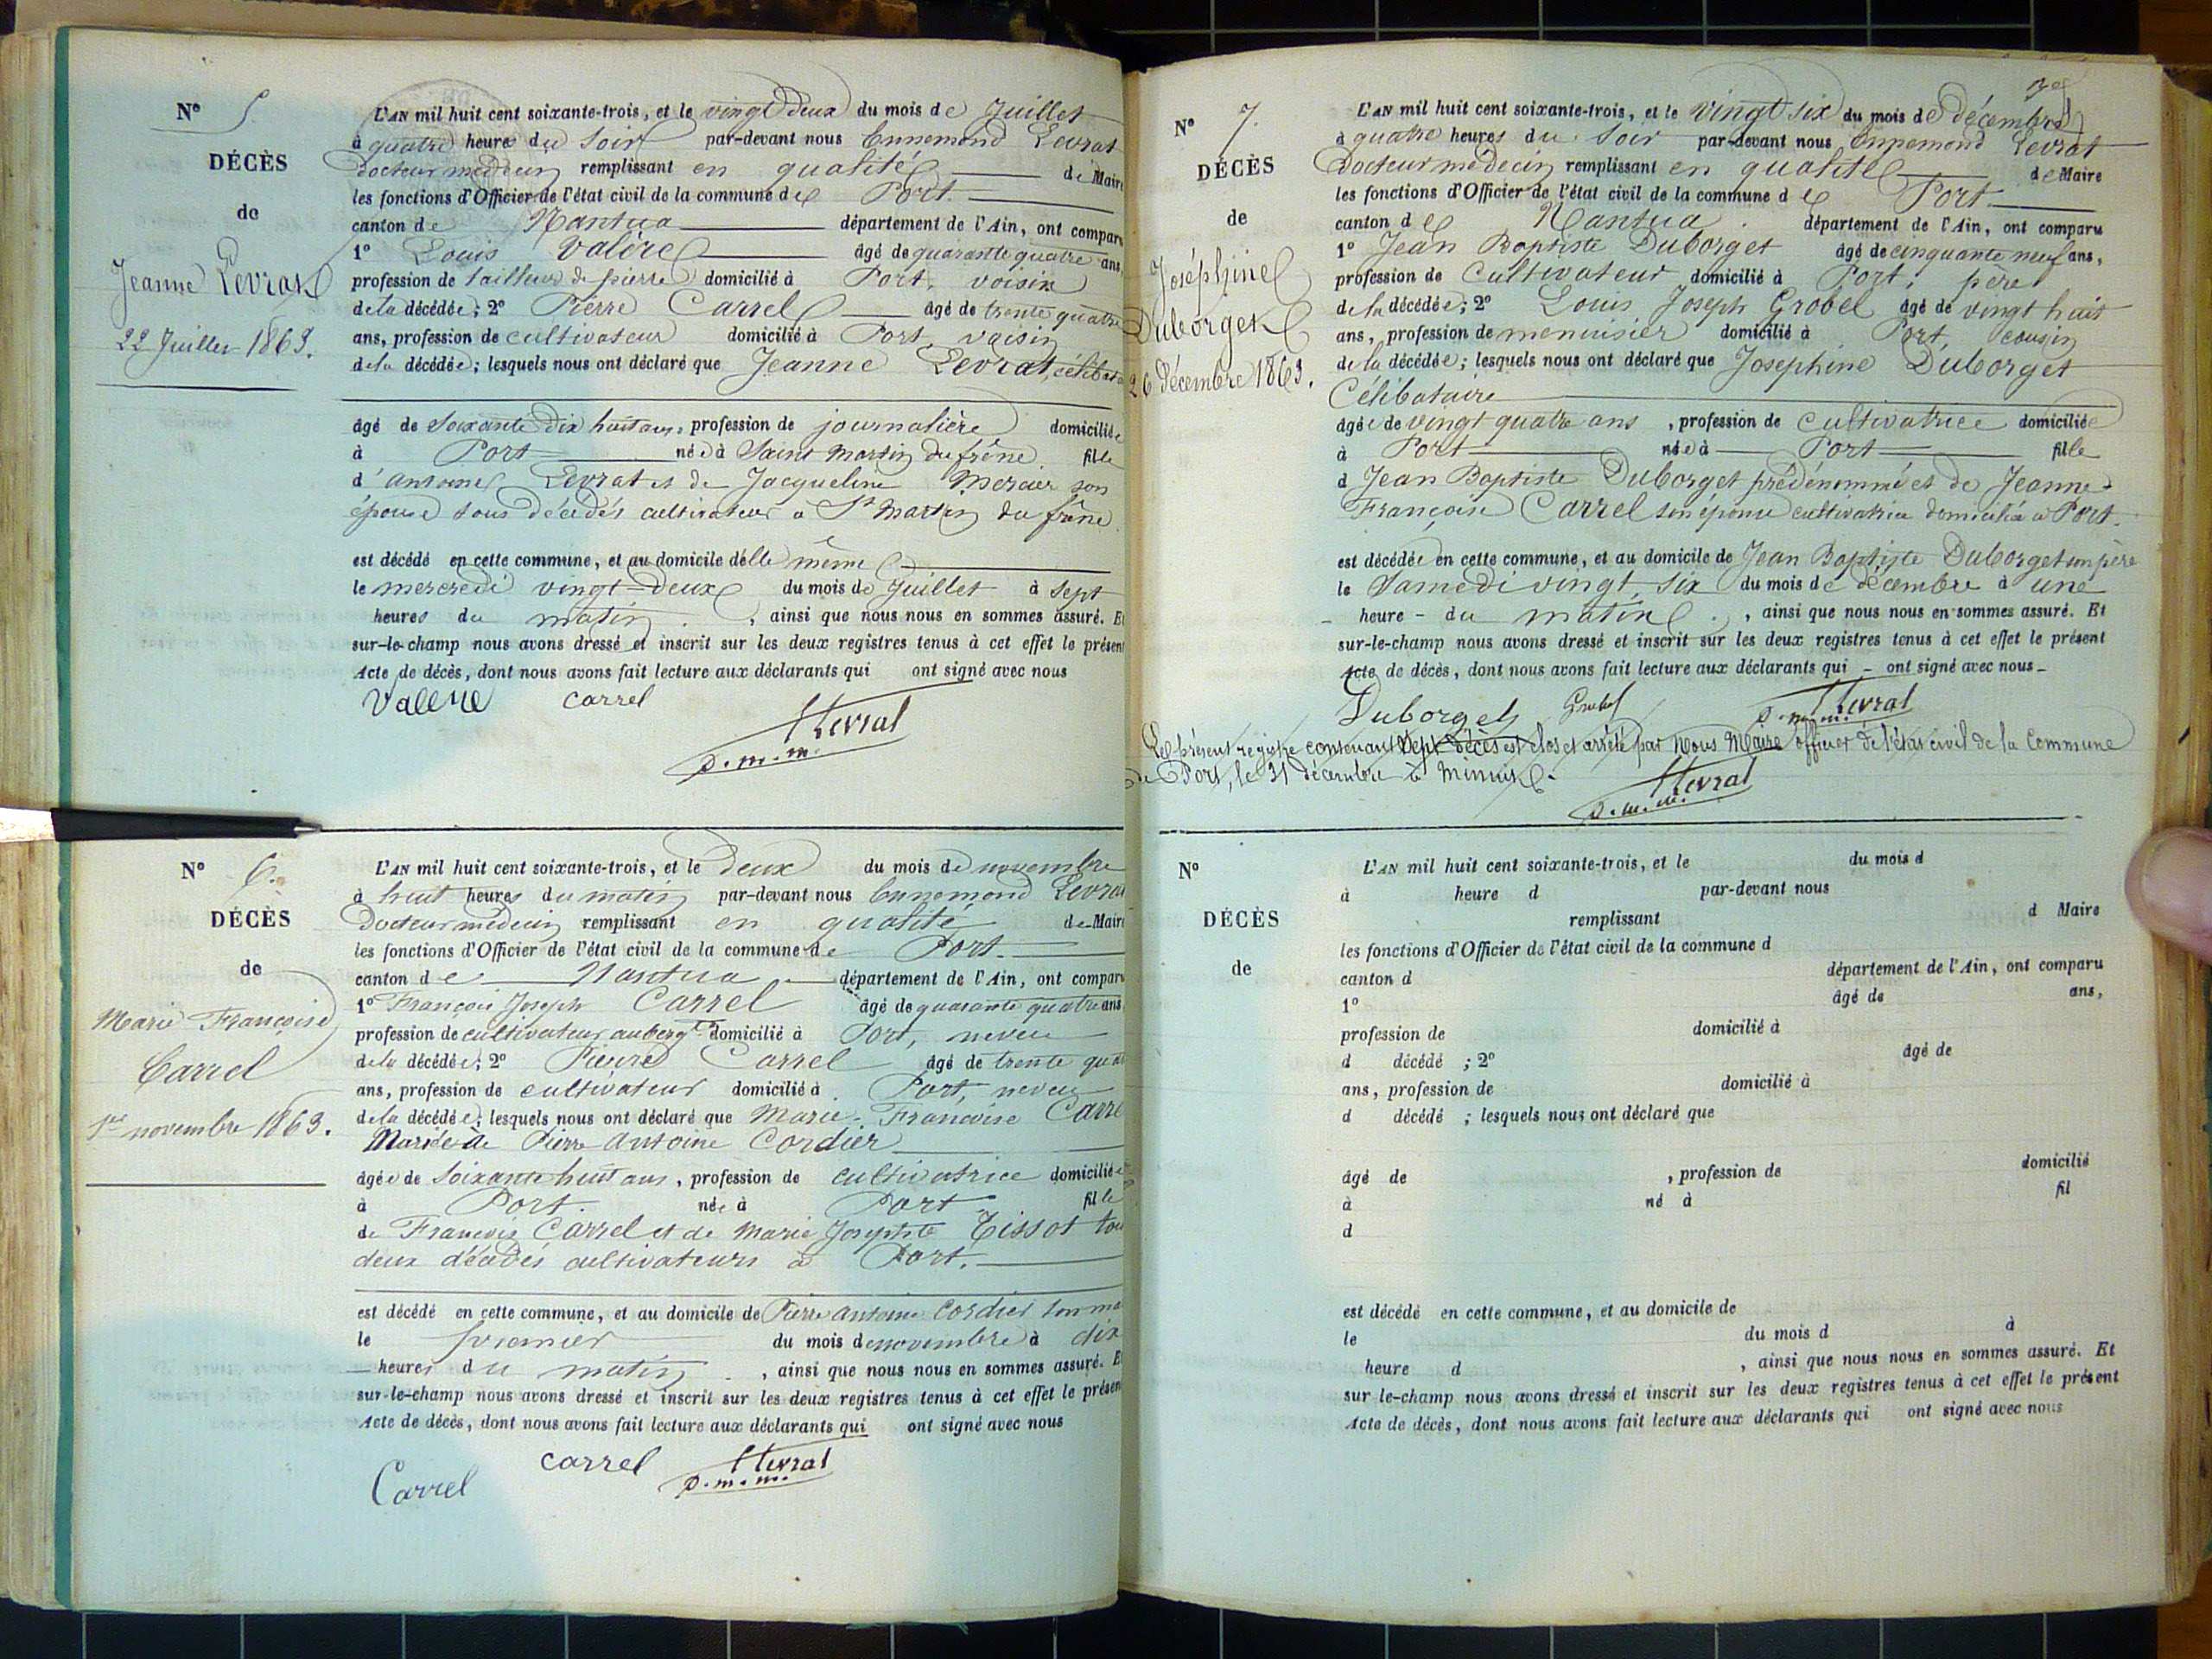 N° 5.
DÉCÈS
de
Jeanne Levrat
22 Juillet 1863.
L'AN mil huit cent soixante-trois, et le vingt deux du mois de Juillet
à quatre heures du Soir par-devant nous Ennemond Levrat
docteur médecin remplissant en qualité de Maire
les fonctions d'Officier de l'état civil de la commune de Port.
canton de Nantua département de l'Ain, ont comparu
1° Louis Valère âgé de quarante quatre ans,
profession de tailleur de pierre domicilié à Port, voisin
de la décédée; 2° Pierre Carrel âgé de trente quatre
ans, profession de cultivateur domicilié à Port, voisin
de la décédée; lesquels nous ont déclaré que Jeanne Levrat,
âgé de Soixante Dix huit ans, profession de journalière domiciliée
à Port née à Saint Martin du frêne fille
d'antoine Levrat et de Jacqueline Mercier son
épouse tous décédés cultivateur à St Martin du frêne
est décédé en cette commune, et au domicile délle même
le mercredi vingt-Deux du mois de Juillet à Sept
heures du matin, ainsi que nous nous en sommes assuré. Et
sur-le-champ nous avons dressé et inscrit sur les deux registres tenus à cet effet le présent
Acte de décès, dont nous avons fait lecture aux déclarants qui ont signé avec nous
Valère carrel
Levrat
D. m. m.
N° 6.
DÉCÈS
de
Marie Françoise
Carrel
1er novembre 1863.
L'AN mil huit cent soixante-trois, et le Deux du mois de novembre
à huit heures du matin par-devant nous Ennemond Levrat
Docteur médecin remplissant en qualité de Maire
les fonctions d'Officier de l'état civil de la commune de Port.
canton de Nantua département de l'Ain, ont comparu
1° François Joseph Carrel âgé de quarante quatre ans
profession de cultivateur auberg.te domicilié à Port, neveu
de la décédée; 2° Pierre Carrel âgé de trente
ans, profession de cultivateur domicilié à Port, neveu
de la décédée; lesquels nous ont déclaré que Marie-Francoise Carrel
Mariée à Pierre Antoine Cordier
âgée de Soixante huit ans, profession de cultivatrice domiciliée
à Port. née à Port fille
de François Carrel et de Marie Josephte Tissot tous
deux décédés cultivateurs à Port.
est décédé en cette commune, et au domicile de Pierre antoine Cordier son
le premier du mois de novembre à dix
heures du matin, ainsi que nous nous en sommes assuré. Et
sur-le-champ nous avons dressé et inscrit sur les deux registres tenus à cet effet le présent
Acte de décès, dont nous avons fait lecture aux déclarants qui ont signé avec nous
Carrel carrel Levrat
D. m. m.
N° 7.
DÉCÈS
de
Joséphine
Duborget
26 Décembre 1863.
L'AN mil huit cent soixante-trois, et le vingt six du mois de décembre
à quatre heures du Soir par-devant nous Ennemond Levrat
Docteur médecin remplissant en qualité de Maire
les fonctions d'Officier de l'état civil de la commune de Port
canton de Nantua département de l'Ain, ont comparu
1° Jean Baptiste Duborget âgé de cinquante neuf ans,
profession de Cultivateur domicilié à Port, père
de la décédée; 2° Louis Joseph Grobel âgé de vingt huit
ans, profession de menuisier domicilié à Port, cousin
de la décédée; lesquels nous ont déclaré que Josephine Duborget
Célibataire
âgée de vingt quatre ans, profession de Cultivatrice domiciliée
à Port née à Port fille
d Jean Baptiste Duborget prédénommé et de Jeanne
Françoise Carrel son épouse cultivatrice domiciliée à Port.
est décédée en cette commune, et au domicile de Jean Baptiste Duborget son père
le Samedi vingt six du mois de décembre à une
heure - du matin, ainsi que nous nous en sommes assuré. Et
sur-le-champ nous avons dressé et inscrit sur les deux registres tenus à cet effet le présent
Acte de décès, dont nous avons fait lecture aux déclarants qui - ont signé avec nous -
Duborget Grobel Levrat
D. m. m.
Le présent registre contenant Sept décès est clos et arrêté par Nous Maire officier de l'état civil de la Commune
de Port, le 31 décembre à Minuit.
Levrat
D. m. m.
N°
DÉCÈS
de
L'AN mil huit cent soixante-trois, et le du mois d
à heure d par-devant nous
remplissant d Maire
les fonctions d'Officier de l'état civil de la commune d
canton d département de l'Ain, ont comparu
1° âgé de ans,
profession de domicilié à
d décédé ; 2° âgé de
ans, profession de domicilié à
d décédé ; lesquels nous ont déclaré que
âgé de , profession de domicilié
à né à fil
d
est décédé en cette commune, et au domicile de
le du mois d à
heure d , ainsi que nous nous en sommes assuré. Et
sur le-champ nous avons dressé et inscrit sur les deux registres tenus à cet effet le présent
Acte de décès, dont nous avons fait lecture aux déclarants qui ont signé avec nous